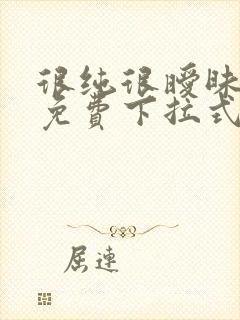 很纯很暧昧
免费下拉式
屈连